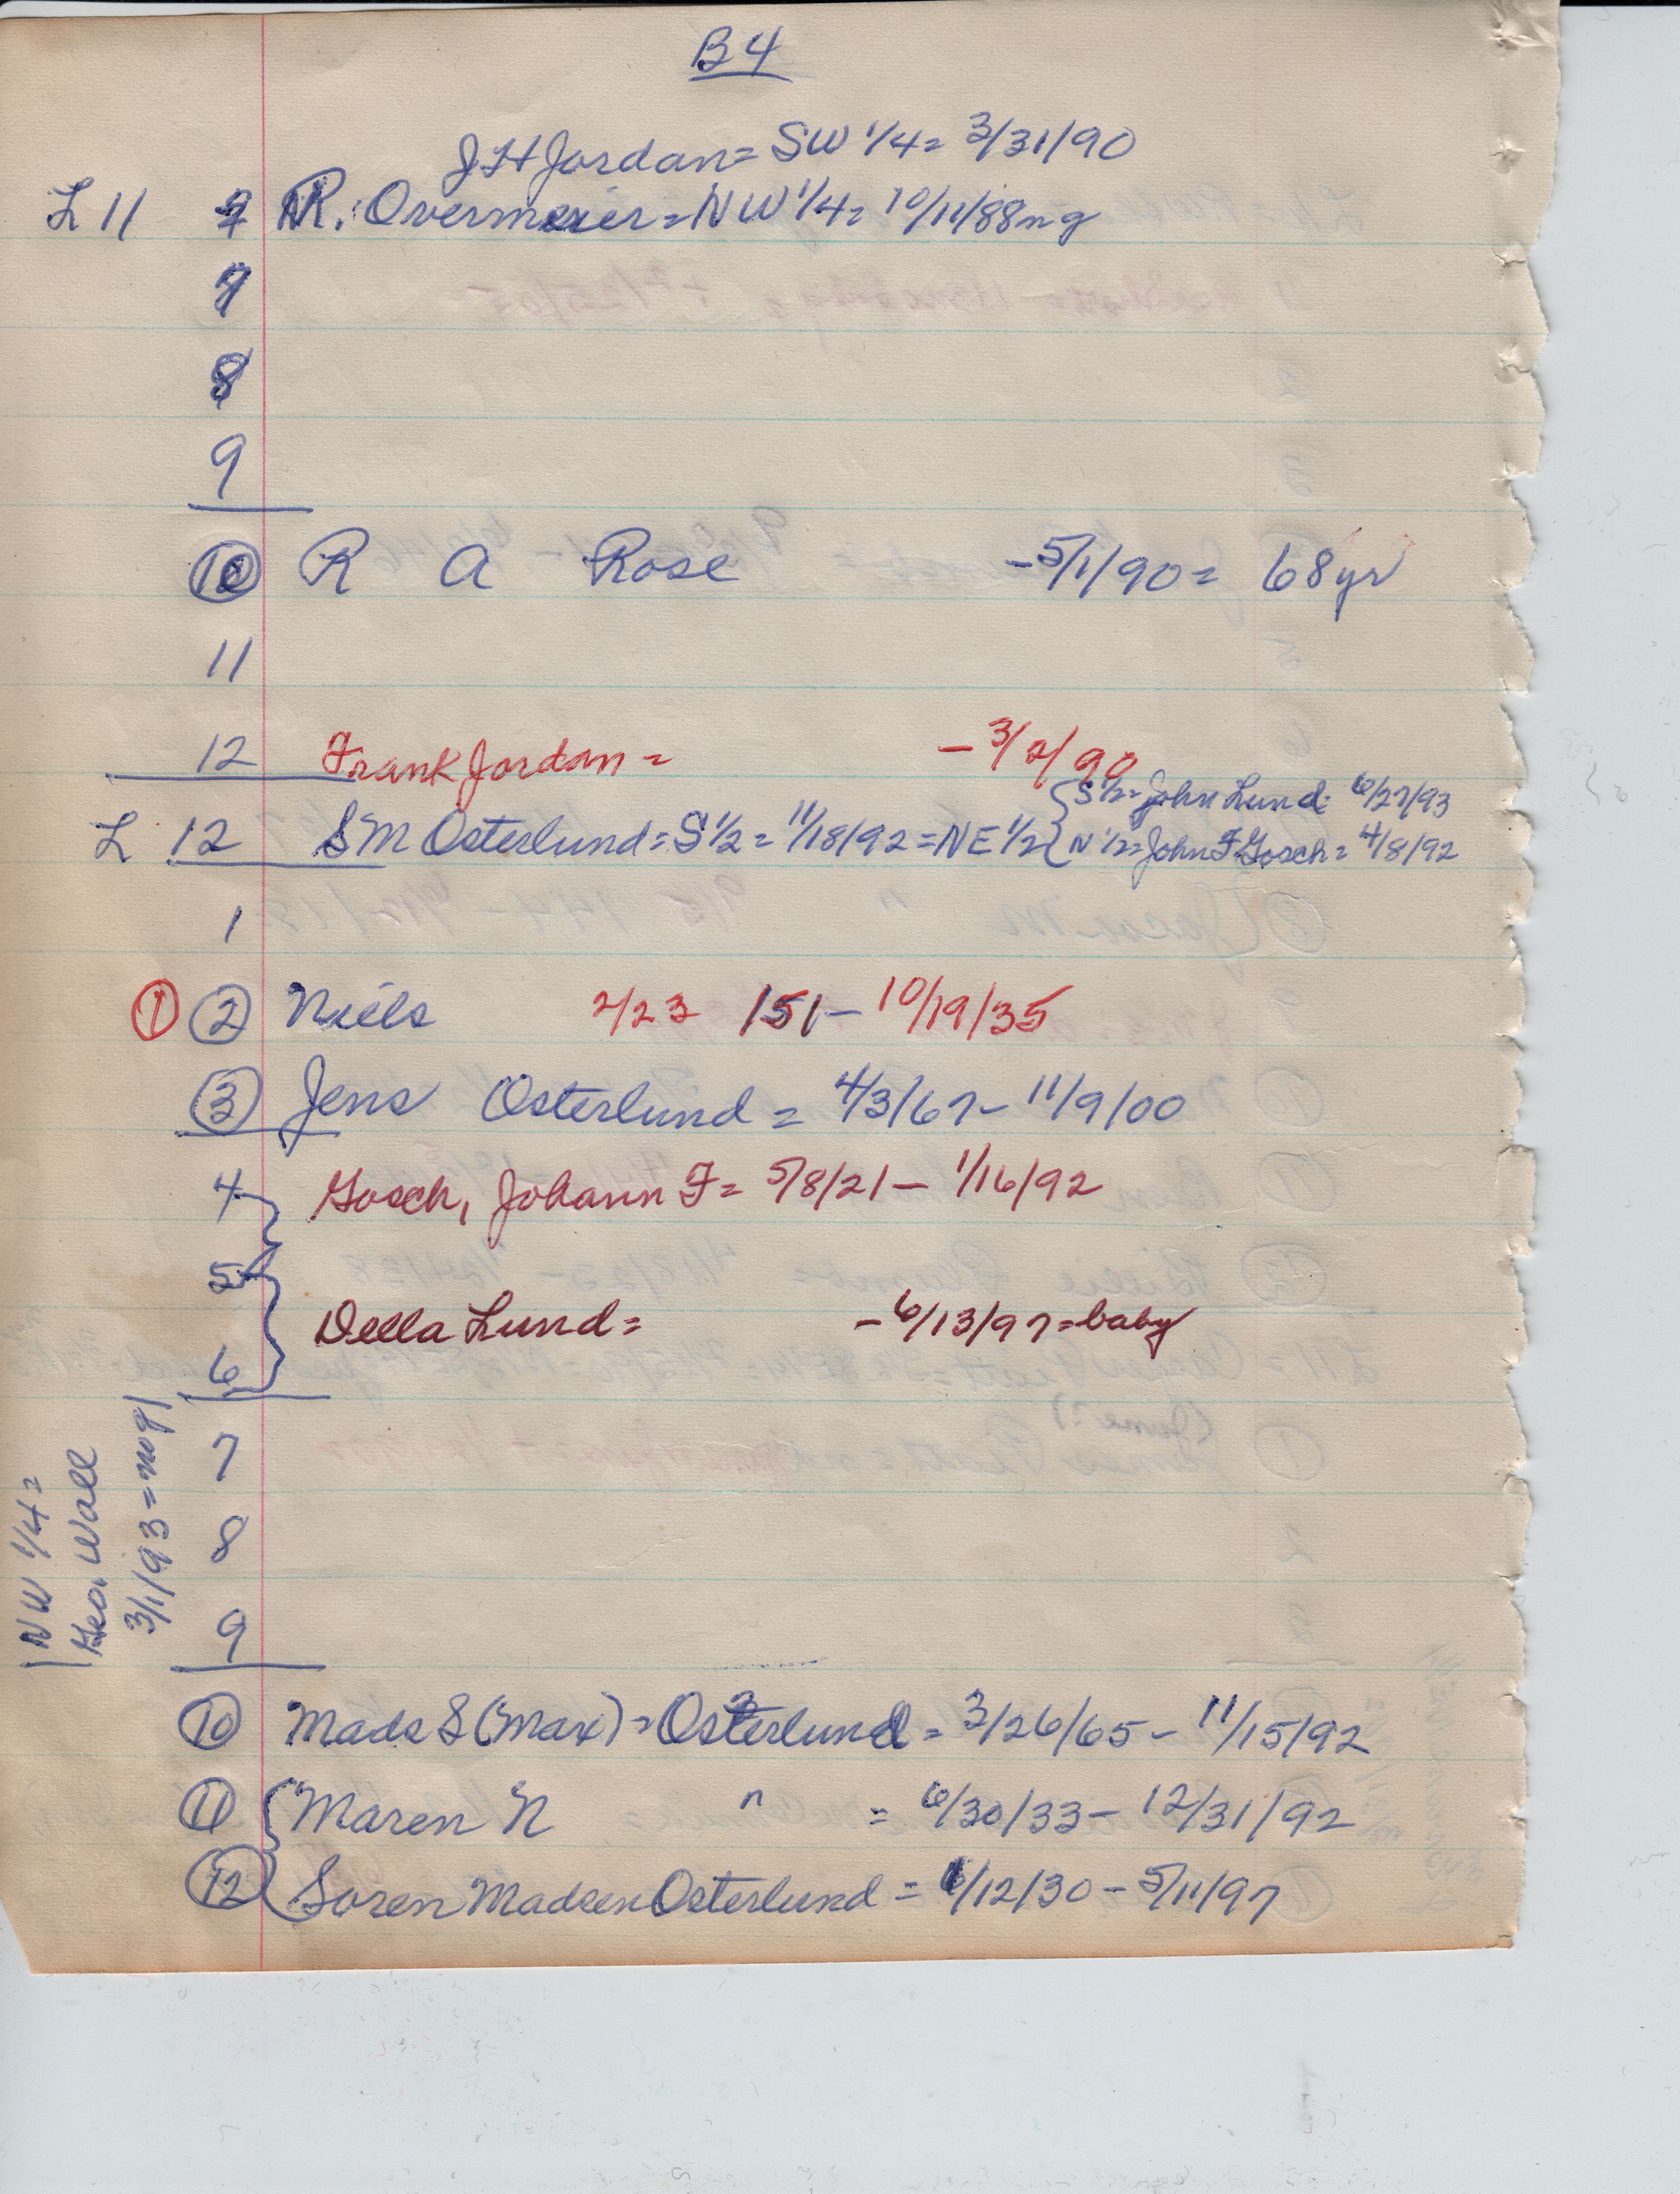 B4
J H Jordan = SW 1/4 = 3/31/90
L 11 R. Overmeier = NW 1/4 = 10/11/88 ng
7
8
9
10 R A Rose - 5/1/90 = 68 yr
11
12 Frank Jordan = - 3/2/90
L 12 S M Osterlund = S 1/2 = 11/18/92 = NE 1/2 { S 1/2 = John Lund = 6/27/93
N 1/2 = John F Gosch = 4/8/92
1
1 2 Niels 2/23 /51 - 10/19/35
3 Jens Osterlund = 4/3/67 - 11/9/00
4 Gosch, Johann F = 5/8/21 - 1/16/92
5
Della Lund = - 6/13/97 = baby
6
7
8
9
NW 1/4 =
Geo. Wall
3/1/93 = ng
10 Mads S (Max) = Osterlund = 3/26/65 - 11/15/92
11 { Maren N " = 6/30/33 - 12/31/92
12 { Soren Madsen Osterlund = 1/12/30 - 5/11/97